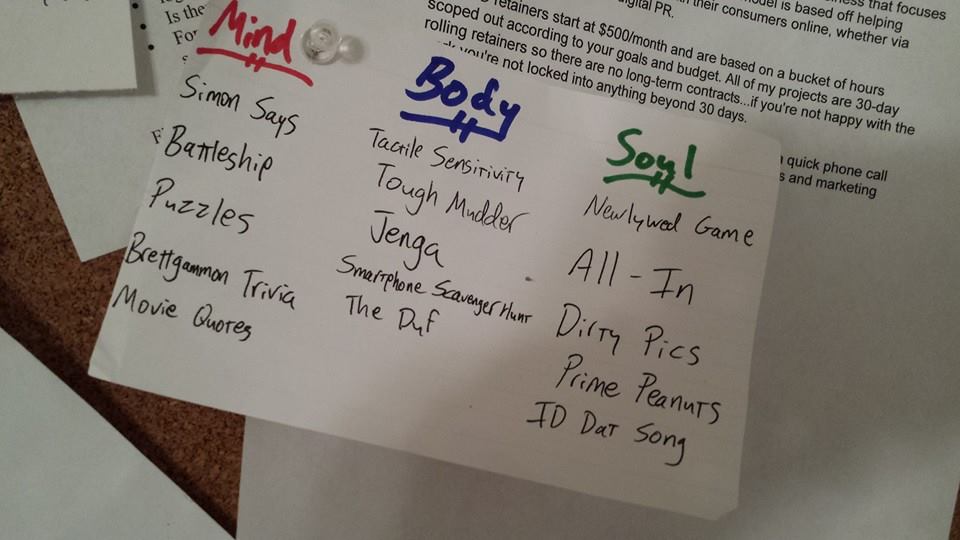 Mind
Simon Says
Battleship
Puzzles
Brettgammon Trivia
Movie Quotes
Body
Tactile Sensitivity
Tough Mudder
Jenga
Smartphone Scavenger Hunt
The Duf
Soul
Newlywed Game
All-In
Dirty Pics
Prime Peanuts
ID Dat Song
Is the
For
that focuses
is based off helping
their consumers online, whether via
digital PR.
retainers start at $500/month and are based on a bucket of hours
scoped out according to your goals and budget. All of my projects are 30-day
rolling retainers so there are no long-term contracts...if you're not happy with the
you're not locked into anything beyond 30 days.
quick phone call
and marketing